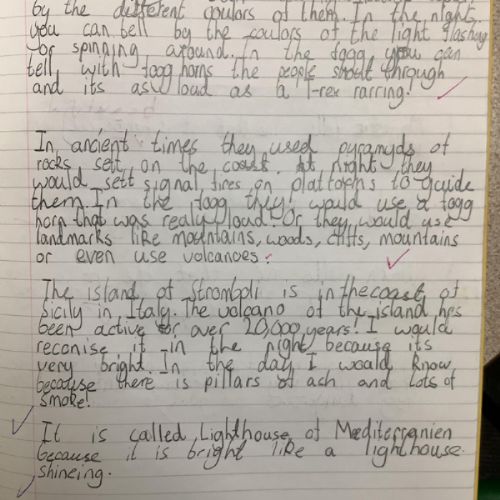 by the different coulors of them. In the night,
you can tell by the coulors of the light flashing
or spinning around. In the fogg you can
tell with fogg horns the people shout through
and its as loud as a T-rex rarring!
In, ancient times they used pyramyds of
rocks sett on the coast. At night they
would sett signal, fires on platforms to guide
them. In the fogg they would use a fogg
horn that was realy loud. Or they would use
landmarks like mountains, woods, cliffs, mountains
or even use volcanoes.
The island of Stromboli is in the coast of
Sicily in, Italy. The volcano of the island has
been active for over 20,000 years! I would
reconise it in the night because its
very bright. In the day I would know
because there is pillars of ach and lots of
smoke!
It is called, Lighthouse of Mediterranien
because it is bright like a lighthouse
shineing.